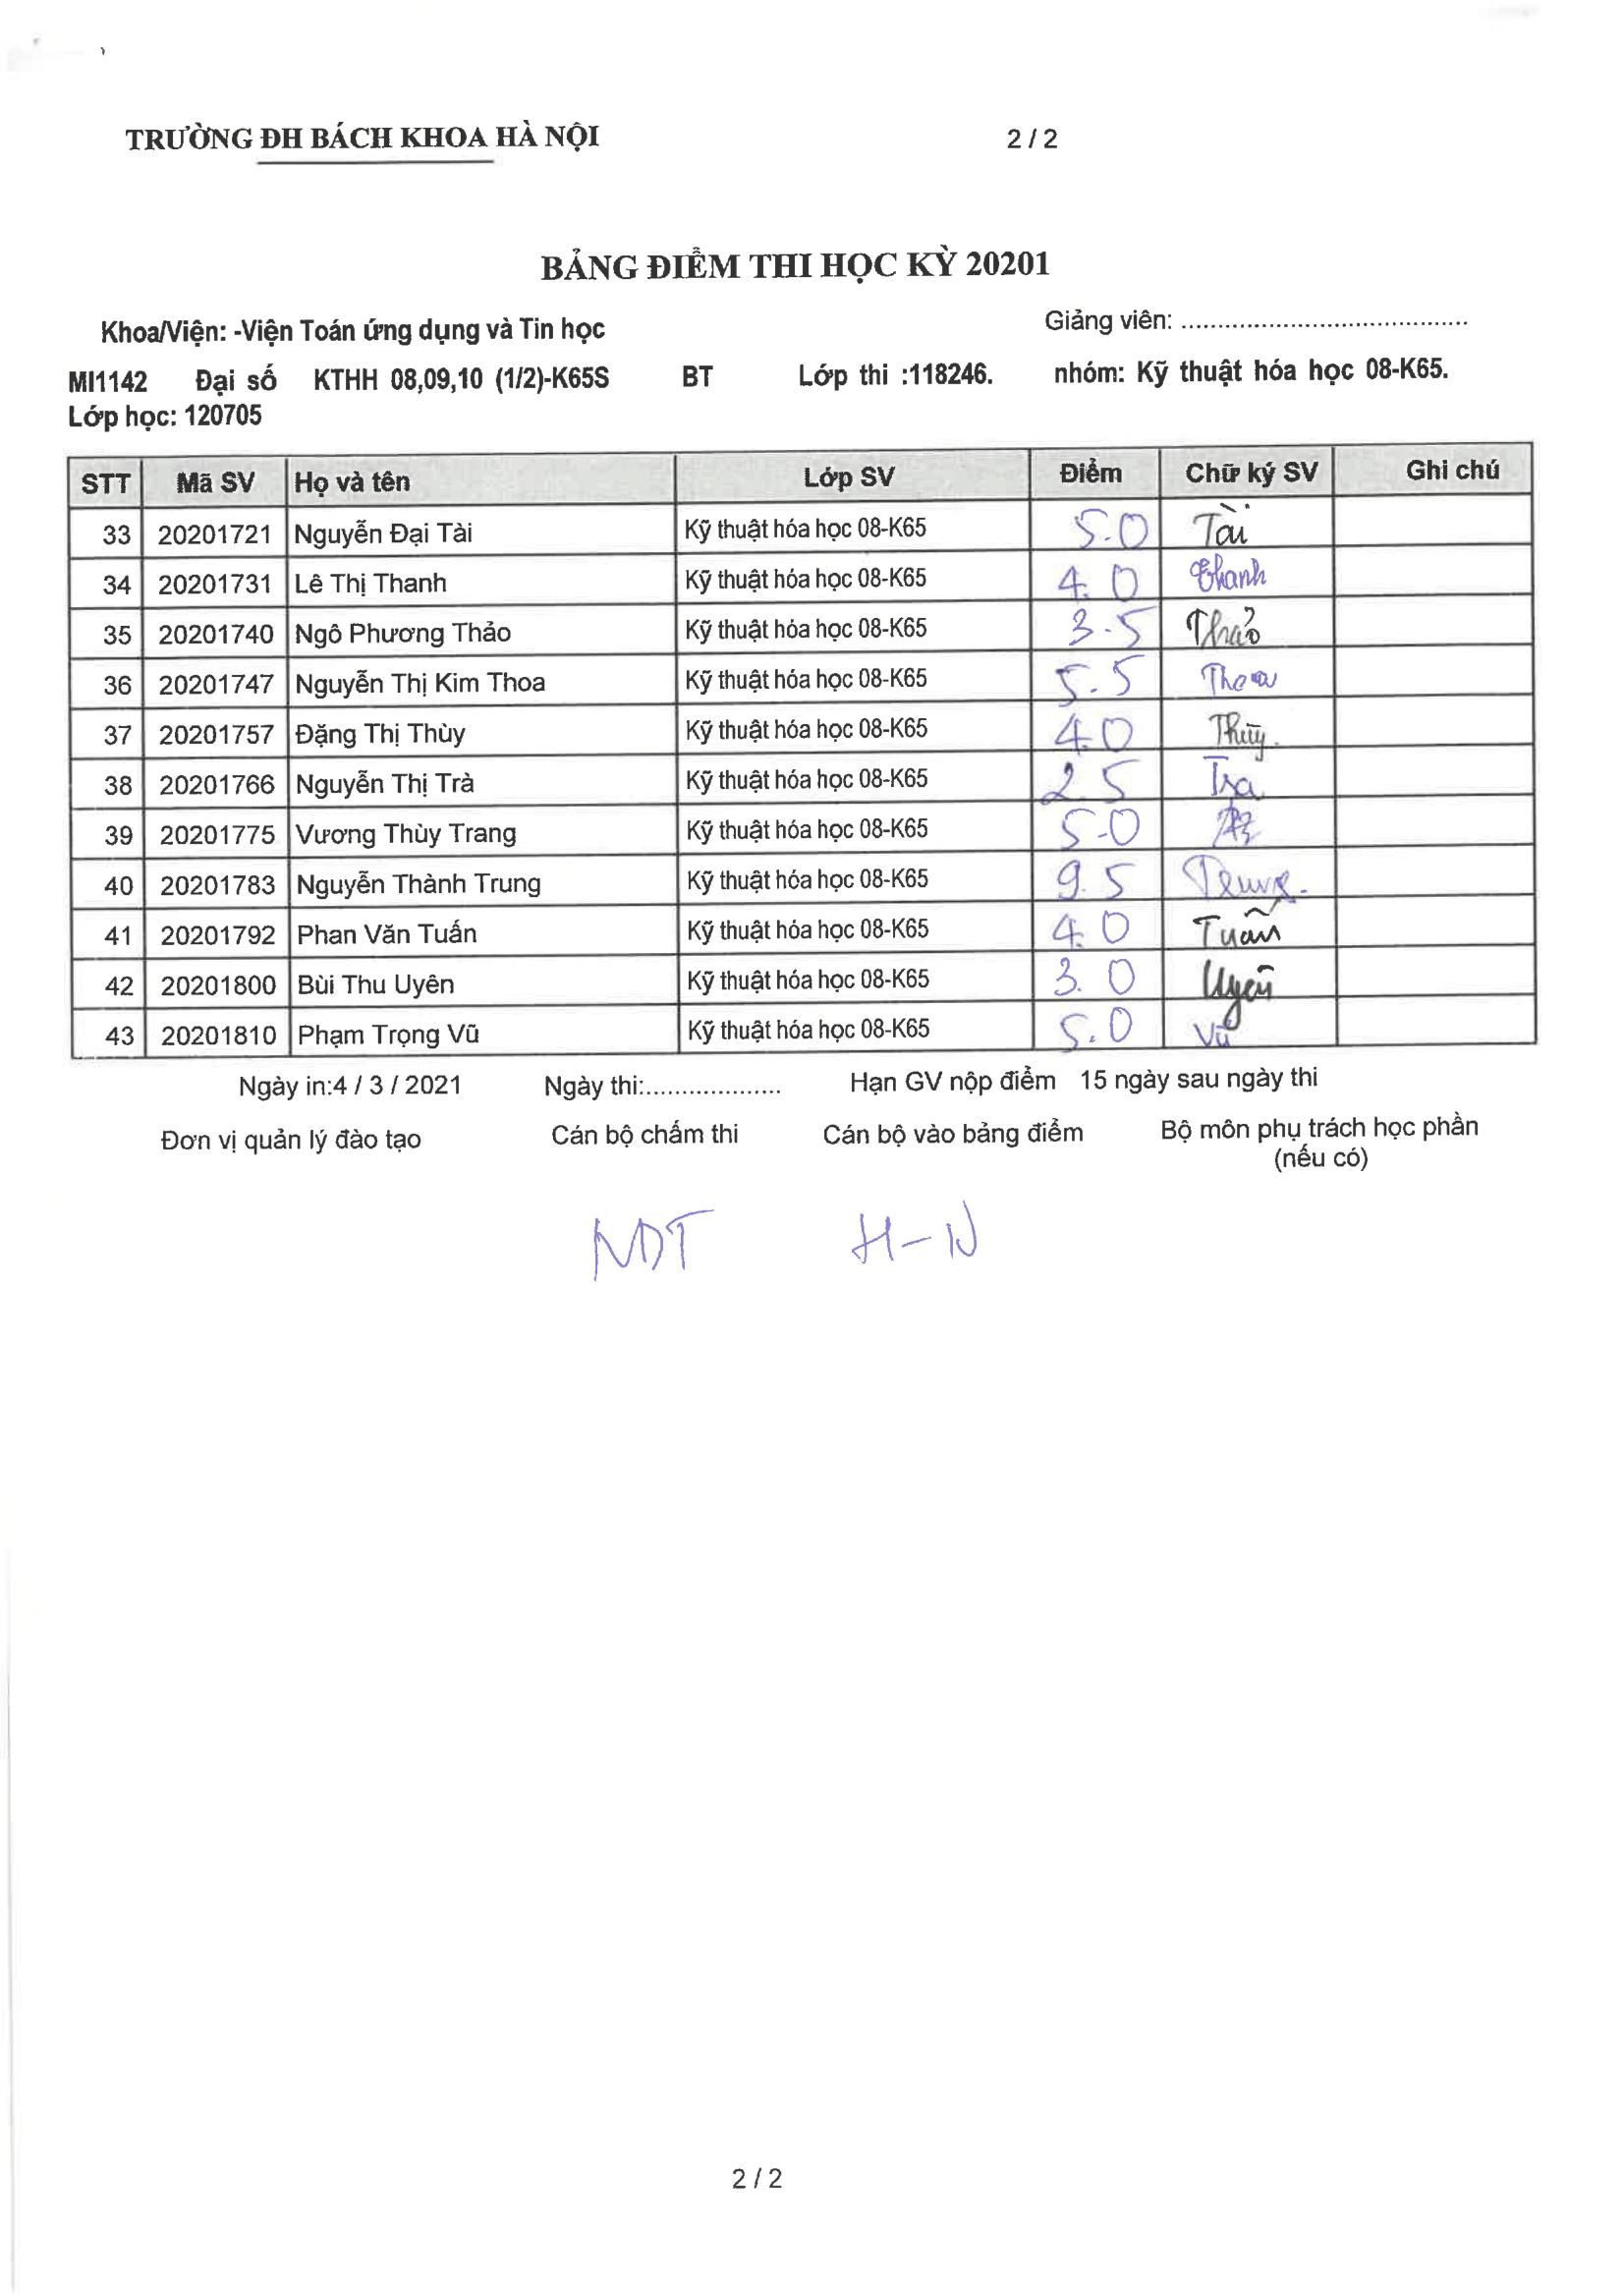 TRƯỜNG ĐH BÁCH KHOA HÀ NỘI 2 / 2
BẢNG ĐIỂM THI HỌC KỲ 20201
Khoa/Viện: -Viện Toán ứng dụng và Tin học Giảng viên: ........................................
MI1142 Đại số KTHH 08,09,10 (1/2)-K65S BT Lớp thi :118246. nhóm: Kỹ thuật hóa học 08-K65.
Lớp học: 120705
STT Mã SV Họ và tên Lớp SV Điểm Chữ ký SV Ghi chú
33 20201721 Nguyễn Đại Tài Kỹ thuật hóa học 08-K65 5.0 Tài
34 20201731 Lê Thị Thanh Kỹ thuật hóa học 08-K65 4.0 Thanh
35 20201740 Ngô Phương Thảo Kỹ thuật hóa học 08-K65 3.5 Thảo
36 20201747 Nguyễn Thị Kim Thoa Kỹ thuật hóa học 08-K65 5.5 Thoa
37 20201757 Đặng Thị Thùy Kỹ thuật hóa học 08-K65 4.0 Thùy.
38 20201766 Nguyễn Thị Trà Kỹ thuật hóa học 08-K65 2.5 Trà
39 20201775 Vương Thùy Trang Kỹ thuật hóa học 08-K65 5.0
40 20201783 Nguyễn Thành Trung Kỹ thuật hóa học 08-K65 9.5 Trung.
41 20201792 Phan Văn Tuấn Kỹ thuật hóa học 08-K65 4.0 Tuấn
42 20201800 Bùi Thu Uyên Kỹ thuật hóa học 08-K65 3.0 Uyên
43 20201810 Phạm Trọng Vũ Kỹ thuật hóa học 08-K65 5.0 Vũ
Ngày in:4 / 3 / 2021 Ngày thi:................... Hạn GV nộp điểm 15 ngày sau ngày thi
Đơn vị quản lý đào tạo Cán bộ chấm thi Cán bộ vào bảng điểm Bộ môn phụ trách học phần
(nếu có)
NDT H-N
2 / 2